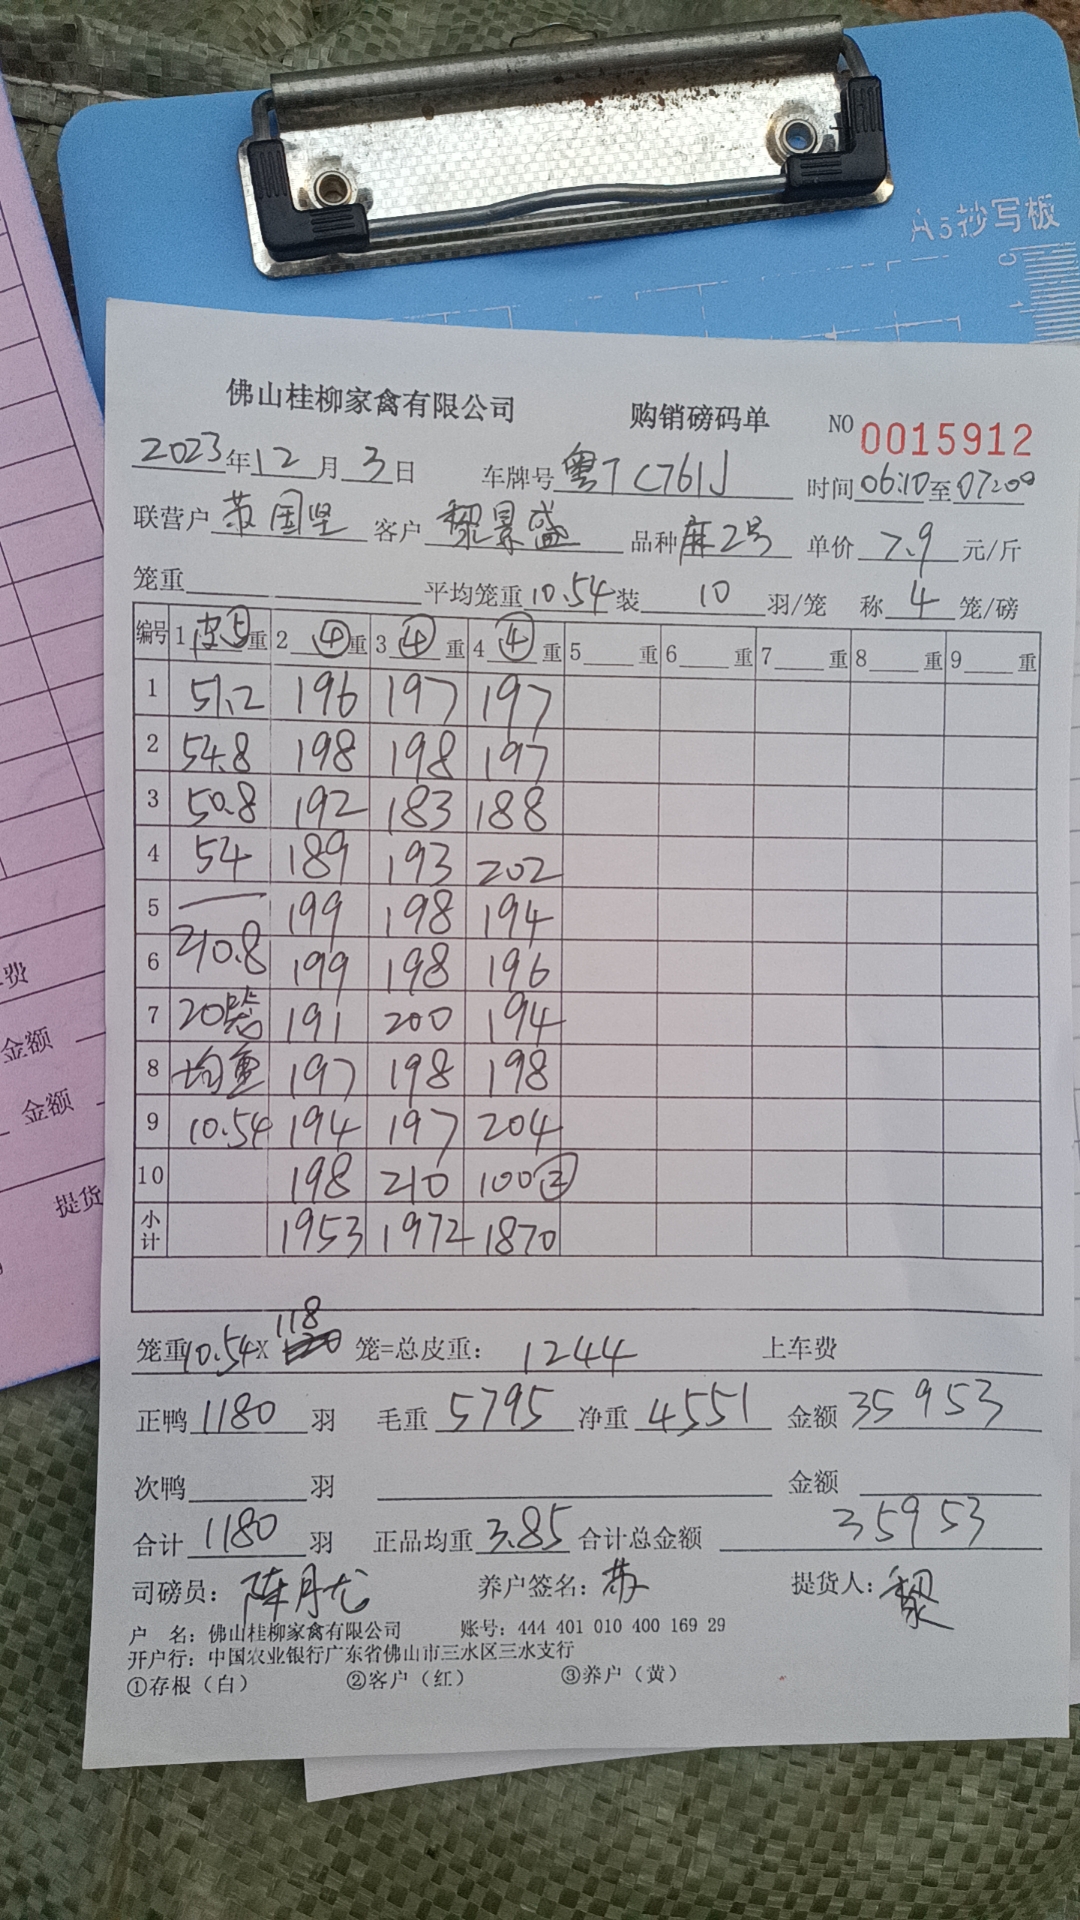 A5抄写板
佛山桂柳家禽有限公司 购销磅码单 NO 0015912
2023年12月3日 车牌号粤TC761J 时间06:10至07:20
联营户 苏国坚 客户 黎景盛 品种麻2号 单价 7.9 元/斤
笼重 平均笼重10.54装 10 羽/笼 称 4 笼/磅
编号 1 皮⑤重 2 ④重 3 ④ 重 4 ④ 重 5 重 6 重 7 重 8 重 9 重
1 51.2 196 197 197
2 54.8 198 198 197
3 50.8 192 183 188
4 54 189 193 202
5 199 198 194
6 210.8 199 198 196
7 20笼 191 200 194
8 均重 197 198 198
9 10.54 194 197 204
10 198 210 100②
小计 1953 1972 1870
笼重10.54X 118 笼=总皮重: 1244 上车费
正鸭1180 羽 毛重 5795 净重 4551 金额 35953
次鸭 羽 金额
合计 1180 羽 正品均重 3.85 合计总金额 35953
司磅员: 陈月龙 养户签名: 苏 提货人: 黎
户 名: 佛山桂柳家禽有限公司 账号: 444 401 010 400 169 29
开户行: 中国农业银行广东省佛山市三水区三水支行
①存根（白） ②客户（红） ③养户（黄）
费
金额
金额
提货